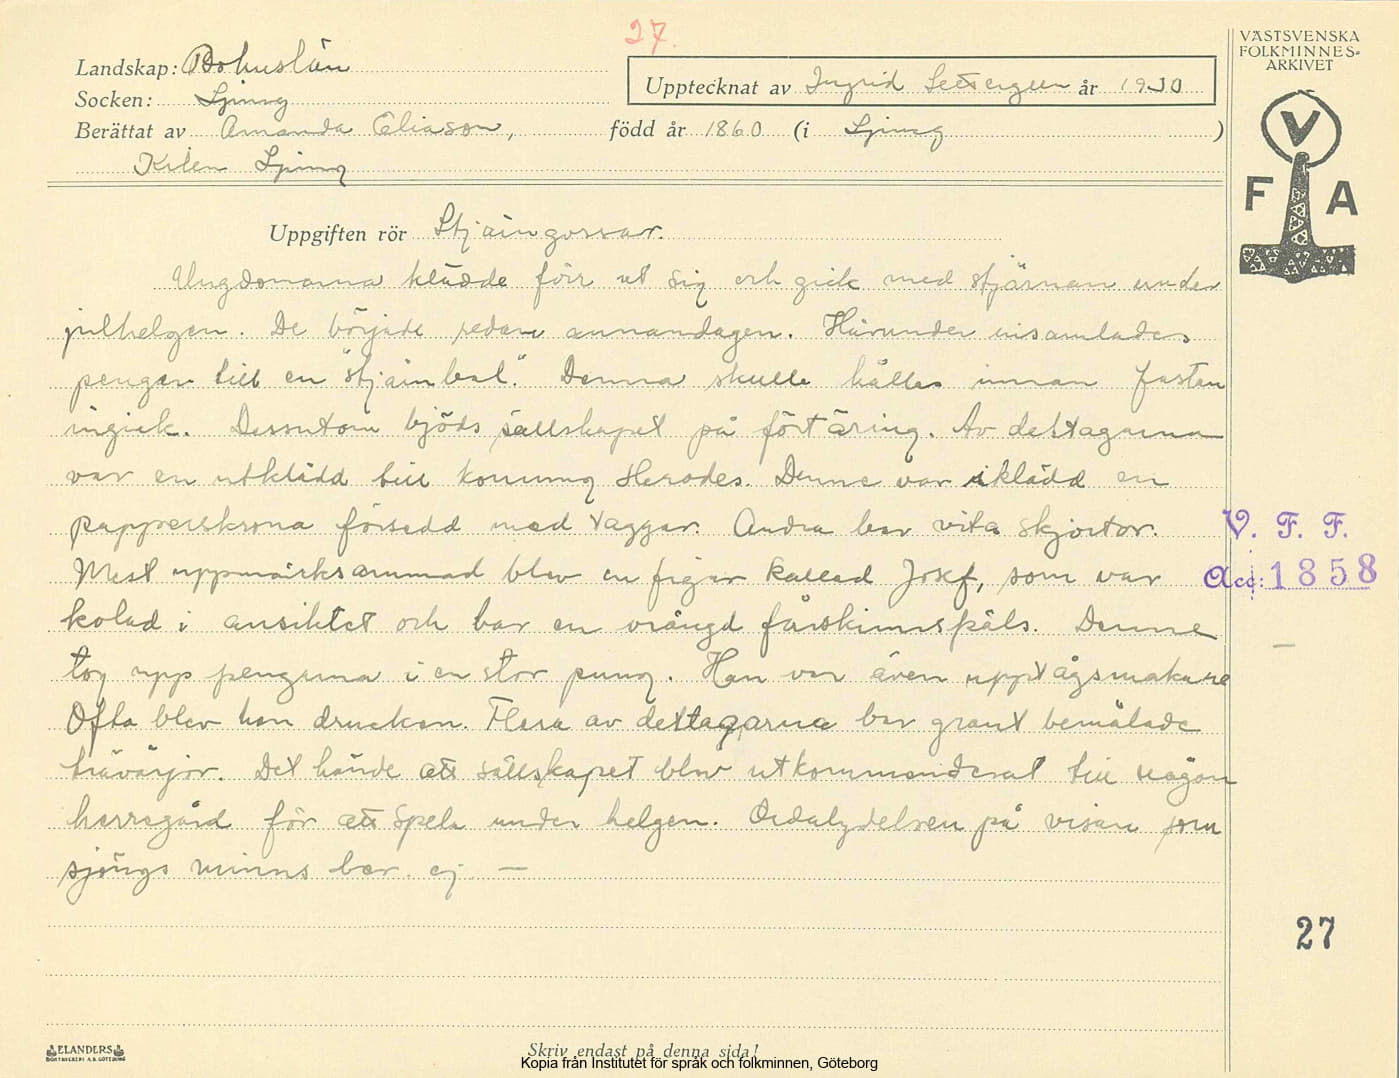 27.
VÄSTSVENSKA
FOLKMINNES-
ARKIVET
Landskap: Bohuslän
Upptecknat av Ingrid år 1930
Socken: Ljung
Berättat av Amanda Eliason, född år 1860 (i Ljung )
Kilen Ljung
V
F A
Uppgiften rör Stjärngossar.
Ungdomarna klädde förr ut sig och gick med stjärnan under
julhelgen. De började redan annandagen. Härunder insamlades
pengar till en "stjärnbal". Denna skulle hålles innan fastan
ingick. Dessutom bjöds sällskapet på förtäring. Av deltagarna
var en utklädd till konung Herodes. Denne var iklädd en
papperskrona försedd med taggar. Andra bar vita skjortor.
Mest uppmärksammad blev en figur kallad Josef, som var
kolad i ansiktet och bar en vrångd fårskinnspäls. Denne
tog upp pengarna i en stor pung. Han var även upptågsmakare
Ofta blev han drucken. Flera av deltagarna bar grant bemålade
trävärjor. Det hände att sällskapet blev utkommenderat till någon
herregård för att spela under helgen. Ordalydelsen på visan som
sjöngs minns ber. ej. —
V. F. F.
Acc: 1858
27
ELANDERS
BOKTRYCKERI A.B. GÖTEBORG
Skriv endast på denna sida!
Kopia från Institutet för språk och folkminnen, Göteborg